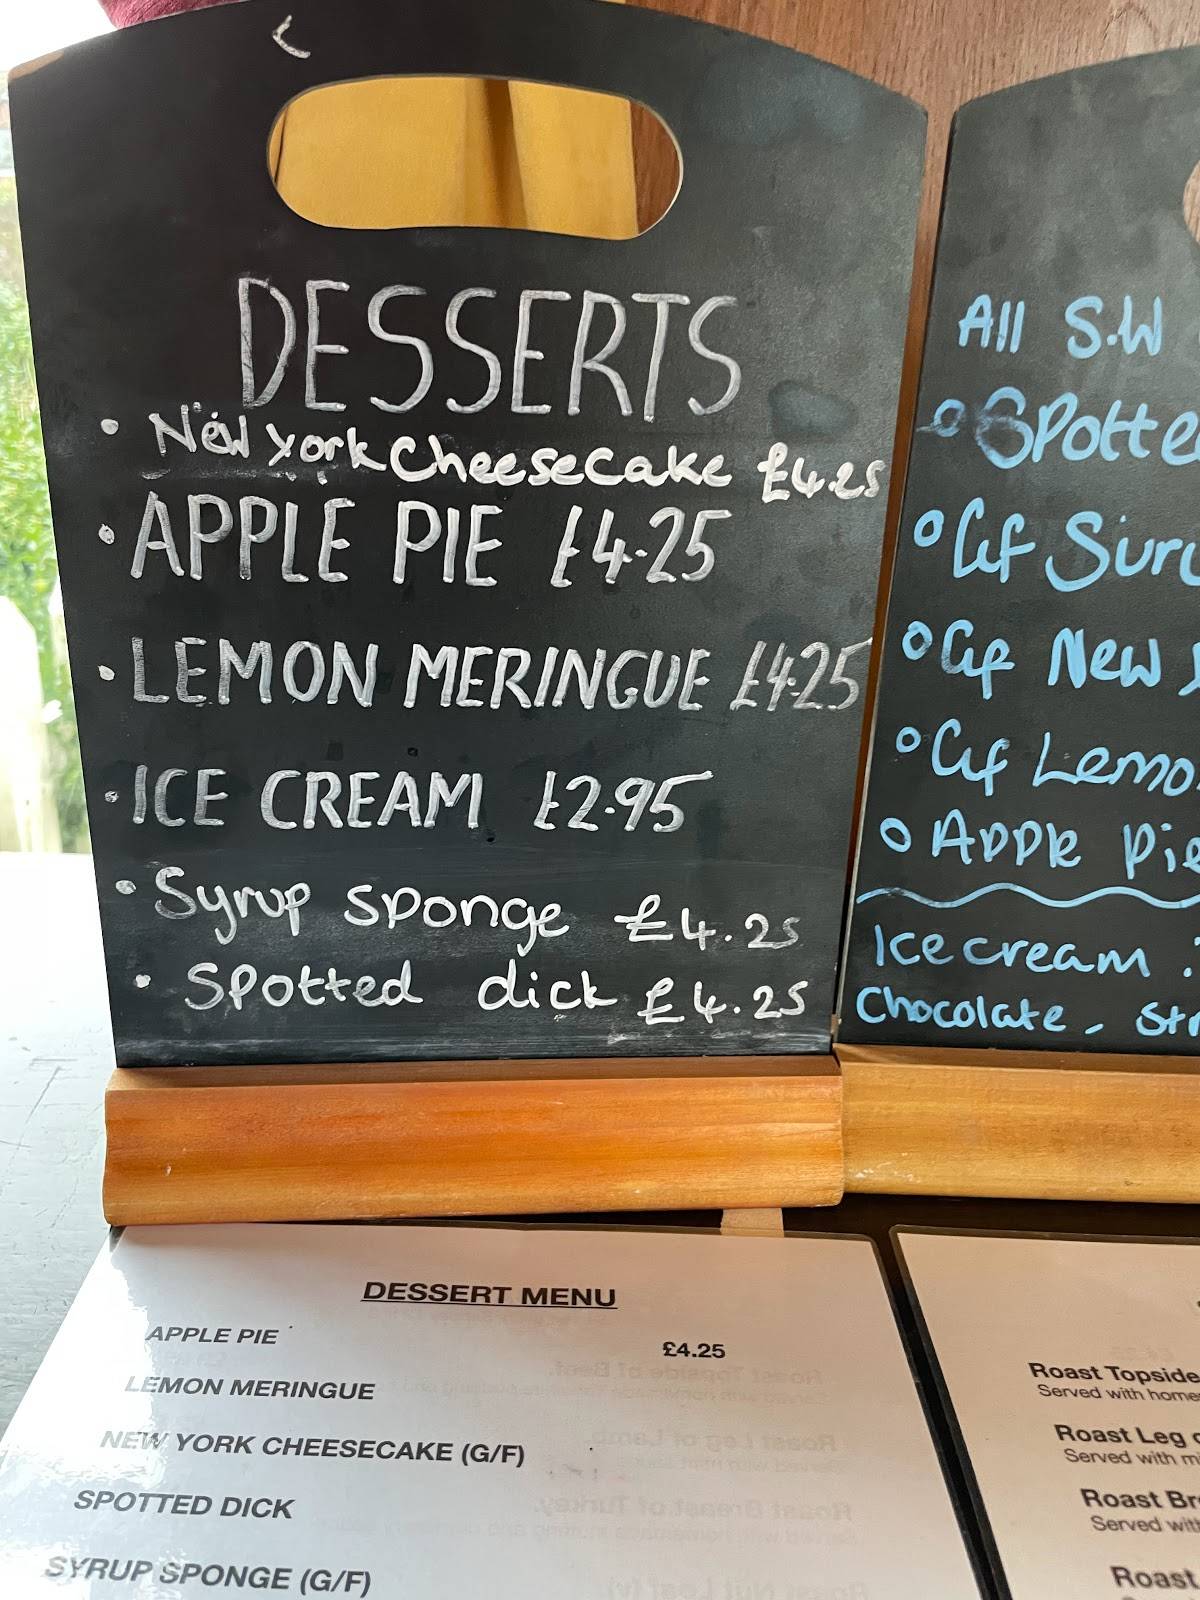 DESSERTS
• New York Cheesecake £4.25
• APPLE PIE £4.25
• LEMON MERINGUE £4.25
• ICE CREAM £2.95
• Syrup sponge £4.25
• Spotted dick £4.25
All S.W
Spotte
Gf Syru
Gf New
Gf Lemo
Apple Pie
Ice cream :
Chocolate, Str
DESSERT MENU
APPLE PIE £4.25
LEMON MERINGUE
NEW YORK CHEESECAKE (G/F)
SPOTTED DICK
SYRUP SPONGE (G/F)
Roast Topside
Served with home
Roast Leg o
Served with mi
Roast Br
Served with
Roast